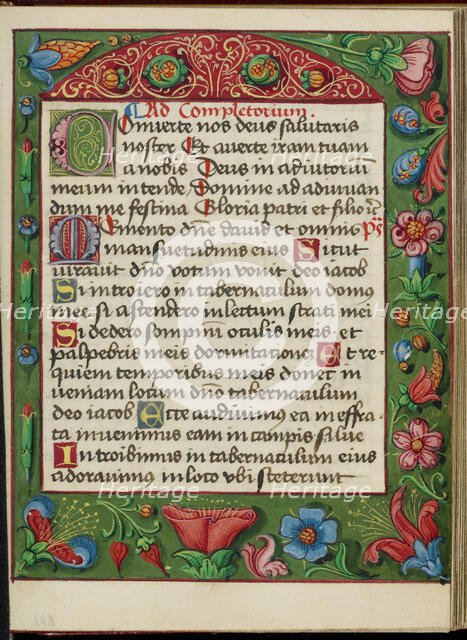 Ad Completorium.
Converte nos deus salutaris
noster Et averte iram tuam
a nobis Deus in adiutoriu
meum intende Domine ad adiuvan
dum me festina Gloria patri et filio
Memento dne david et omnis ps
mansuetudinis eius Sicut
iuravit dno votum vovit deo iacob
Si introiero in tabernaculum domus
mee si ascendero in lectum strati mei
Si dedero sompnu oculis meis et
palpebris meis dormitatione Et re
quiem temporibus meis donec in
veniam locum dno tabernaculum
deo iacob Ecce audivimus ea in effra
ta invenimus eam in campis silue
Introibimus in tabernaculum eius
adoravimus in loco ubi steterunt
Heritage Images
Heritage
Heritage